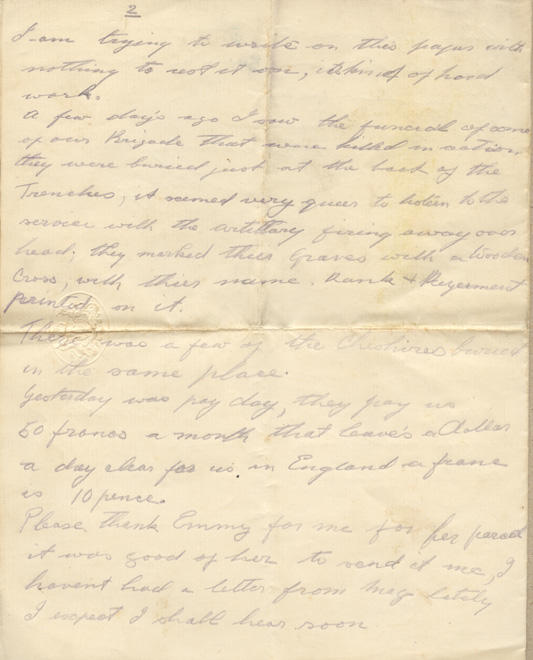 2
I am trying to write on this paper with
nothing to rest it on, its kind of hard
work.
A few day's ago I saw the funeral of some
of our Brigade that were killed in action
they were buried just at the back of the
Trenches, it seemed very queer to listen to the
service with the artillary firing away over
head. they marked thier Graves with a Wooden
Cross, with thier name. Rank & Regerment
Printed on it.
There was a few of the Cheshires buried
in the same place.
Yesterday was pay day, they pay us
50 francs a month that leave's a Dollar
a day clear for us in England a franc
is 10 pence.
Please thank Emmy for me for her parcel
it was good of her to send it me, I
havent had a letter from Mag lately
I expect I shall hear soon